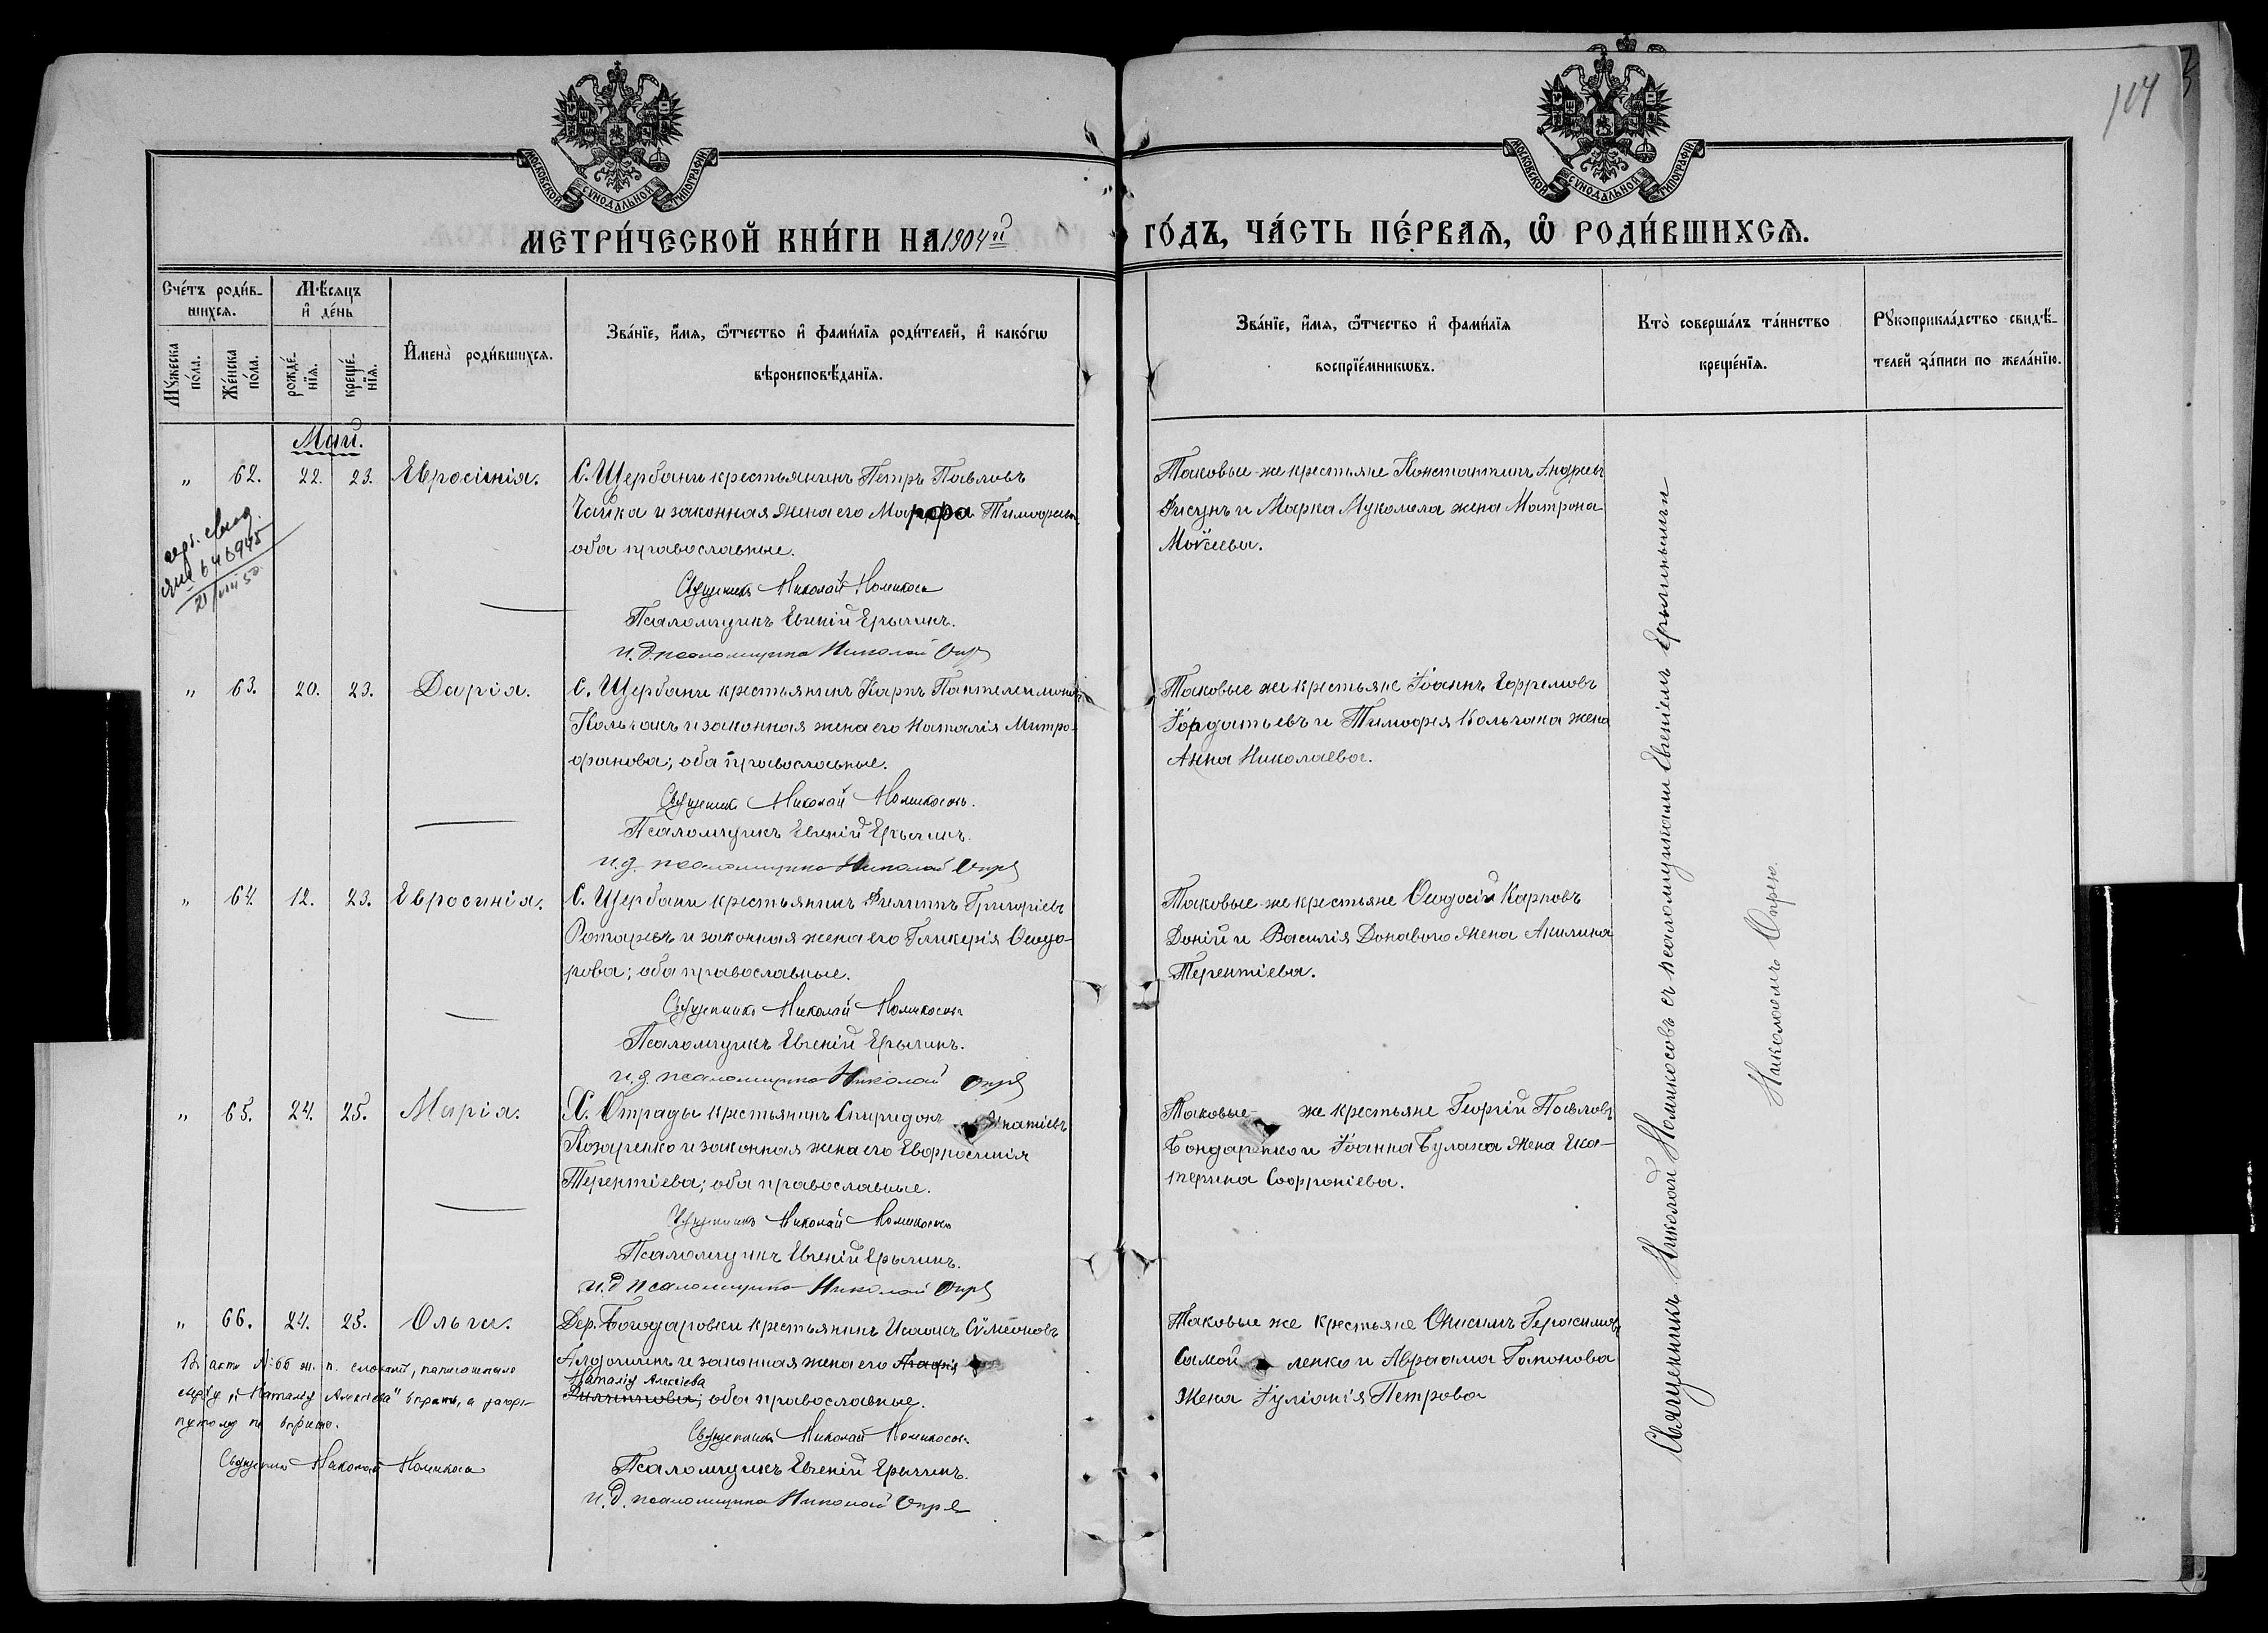 104
МОСКОВСКОЙ СУНОДАЛЬНОЙ ТИПОГРАФІИ
МОСКОВСКОЙ СУНОДАЛЬНОЙ ТИПОГРАФІИ
МЕТРИ́ЧЕСКОЙ КНИ́ГИ НА 1904й ГО́ДЪ, ЧА́СТЬ ПЕ́РВАѦ, Ѡ҆ РОДИ́ВШИХСѦ.
Сче́тъ роди́в-
шихсѧ.
Мꙋ́жеска по́ла.
Же́нска по́ла.
Мѣ́сяцъ и҆ де́нь
рожде́-нїѧ.
креще́-нїѧ.
И҆мена̀ роди́вшихсѧ.
Зва́нїе, и҆́мѧ, ѻ҆́тчество и҆ фами́лїѧ роди́телей, и҆ како́гѡ
вѣроисповѣ́данїѧ.
Зва́нїе, и҆́мѧ, ѻ҆́тчество и҆ фами́лїѧ
воспрїе́мникѡвъ.
Кто̀ соверша́лъ та́инство
креще́нїѧ.
Рꙋкоприкла́дство свидѣ́-
телей за́писи по жела́нїю.
Май.
" 62. 22. 23. Евросинія.
С. Щербани крестьянинъ Петръ Павловъ
Чайка и законная жена его Марфа
оба православные.
Священникъ Николай Номикосовъ
Псаломщикъ Евгеній Ерыгинъ.
И. д. псаломщика Николай Опря
Таковые-же крестьяне Константинъ Андреевъ
Фисунъ и Марка Мукомела жена Матрона
Моѵсеева.
" 63. 20. 23. Дарія.
С. Щербани крестьянинъ Карпъ Пантелеимоновъ
Кольчакъ и законная жена его Наталія Митро-
фанова; оба православные.
Священникъ Николай Номикосовъ.
Псаломщикъ Евгеній Ерыгинъ.
и. д. псаломщика Николай Опря
Таковые же крестьяне Іоаннъ Ефремовъ
и Тимофея Кольчака жена
Анна Николаева.
" 64. 12. 23. Евросинія.
С. Щербани крестьянинъ Филиппъ Григоріевъ
Ротарь и законная жена его Гликерія Ѳеодо-
рова; оба православные.
Священникъ Николай Номикосовъ
Псаломщикъ Евгеній Ерыгинъ.
и. д. псаломщика Николай Опря
Таковые-же крестьяне Ѳеодосій Карповъ
Доній и Василія жена Акилина
Терентіева.
" 65. 24. 25. Марія.
Х. Отрады крестьянинъ Спиридонъ Игнатіевъ
Козаренко и законная жена его Евфросинія
Терентіева; оба православные.
Священникъ Николай Номикосовъ
Псаломщикъ Евгеній Ерыгинъ.
и. д. псаломщика Николай Опря
Таковые же крестьяне Георгій Павловъ
Бондаренко и Іоанна Булаха жена Ека-
терина Софроніева.
" 66. 24. 25. Ольга.
Дер. Богодаровки крестьянинъ Исаакъ Сѵмеоновъ
и законная жена его Агафія
Наталія Алексіева
Филиппова; оба православные.
Священникъ Николай Номикосовъ
Псаломщикъ Евгеній Ерыгинъ.
И. д. псаломщика Николай Опря
Таковые же крестьяне Онисимъ Герасимовъ
Самойленко и Авраама Гапонова
жена Іуліанія Петрова
Въ актѣ № 66
"Наталія Алексіева" вѣрить, а зачер-
кнутому не вѣрить.
Священникъ Николай Номикосовъ
Священникъ Николай Номикосовъ съ псаломщиками Евгеніемъ Ерыгинымъ и
Николаемъ Опрею.